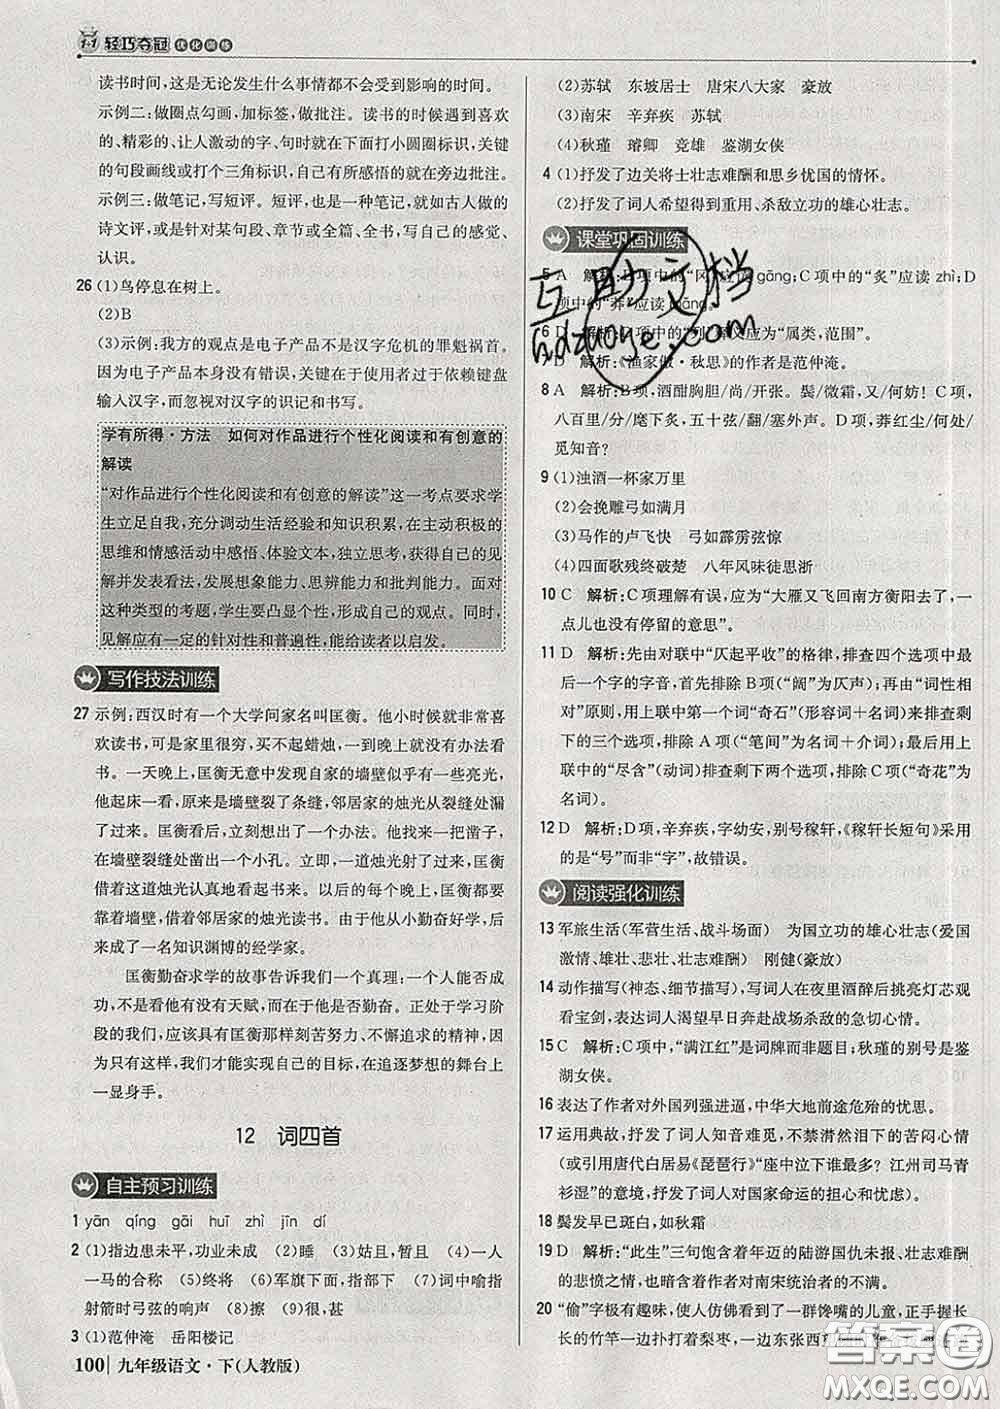 1+1 轻巧夺冠 优化训练
读书时间,这是无论发生什么事情都不会受到影响的时间。
示例二:做圈点勾画,加标签,做批注。读书的时候遇到喜欢
的、精彩的、让人激动的字、句时就在下面打小圆圈标识,关键
的句段画线或打个三角标识,自己有所感悟的就在旁边批注。
示例三:做笔记,写短评。短评,也是一种笔记,就如古人做的
诗文评,或是针对某句段、章节或全篇、全书,写自己的感觉、
认识。
26 (1)鸟停息在树上。
(2)B
(3)示例:我方的观点是电子产品不是汉字危机的罪魁祸首。
因为电子产品本身没有错误,关键在于使用者过于依赖键盘
输入汉字,而忽视对汉字的识记和书写。
学有所得·方法 如何对作品进行个性化阅读和有创意的
解读
“对作品进行个性化阅读和有创意的解读”这一考点要求学
生立足自我,充分调动生活经验和知识积累,在主动积极的
思维和情感活动中感悟、体验文本,独立思考,获得自己的见
解并发表看法,发展想象能力、思辨能力和批判能力。面对
这种类型的考题,学生要凸显个性,形成自己的观点。同时,
见解应有一定的针对性和普遍性,能给读者以启发。
写作技法训练
27 示例:西汉时有一个大学问家名叫匡衡。他小时候就非常喜
欢读书,可是家里很穷,买不起蜡烛,一到晚上就没有办法看
书。一天晚上,匡衡无意中发现自家的墙壁似乎有一些亮光,
他起床一看,原来是墙壁裂了条缝,邻居家的烛光从裂缝处透
了过来。匡衡看后,立刻想出了一个办法。他找来一把凿子,
在墙壁裂缝处凿出一个小孔。立即,一道烛光射了过来,匡衡
借着这道烛光认真地看起书来。以后的每个晚上,匡衡都要
靠着墙壁,借着邻居家的烛光读书。由于他从小勤奋好学,后
来成了一名知识渊博的经学家。
匡衡勤奋求学的故事告诉我们一个真理:一个人能否成
功,不是看他有没有天赋,而在于他是否勤奋。正处于学习阶
段的我们,应该具有匡衡那样刻苦努力、不懈追求的精神,因
为只有这样,我们才能实现自己的目标,在追逐梦想的舞台上
一显身手。
12 词四首
自主预习训练
1 yān qíng gāi huī zhì jīn dí
2 (1)指边患未平,功业未成 (2)睡 (3)姑且,暂且 (4)一人
一马的合称 (5)终将 (6)军旗下面,指部下 (7)词中喻指
射箭时弓弦的响声 (8)擦 (9)很,甚
3 (1)范仲淹 岳阳楼记
100 九年级语文·下(人教版)
(2)苏轼 东坡居士 唐宋八大家 豪放
(3)南宋 辛弃疾 苏轼
(4)秋瑾 璿卿 竞雄 鉴湖女侠
4 (1)抒发了边关将士壮志难酬和思乡忧国的情怀。
(2)抒发了词人希望得到重用、杀敌立功的雄心壮志。
课堂巩固训练
5 A 解析:B项中的“冈”应读 gāng;C项中的“炙”应读 zhì;D
项中的“莽”应读 mǎng。
6 D 解析: 项中的“列”释义应为“属类,范围”。
D 解析:《渔家傲·秋思》的作者是范仲淹。
8 A 解析:B项,酒酣胸胆/尚/开张。鬓/微霜,又/何妨! C项,
八百里/分/麾下炙,五十弦/翻/塞外声。D项,莽红尘/何/处/
觅知音?
9 (1)浊酒一杯家万里
(2)会挽雕弓如满月
(3)马作的卢飞快 弓如霹雳弦惊
(4)四面歌残终破楚 八年风味徒思浙
10 C 解析:C项理解有误,应为“大雁又飞回南方衡阳去了,一
点儿也没有停留的意思”。
11 D 解析:先由对联中“仄起平收”的格律,排查四个选项中最
后一个字的字音,首先排除 B项(“阔”为仄声);再由“词性相
对”原则,用上联中第一个词“奇石”(形容词+名词)来排查剩
下的三个选项,排除 A项(“笔间”为名词+介词);最后用上
联中的“尽含”(动词)排查剩下两个选项,排除C项(“奇花”为
名词)。
12 D 解析:D项,辛弃疾,字幼安,别号稼轩,《稼轩长短句》采用
的是“号”而非“字”,故错误。
阅读强化训练
13 军旅生活(军营生活、战斗场面) 为国立功的雄心壮志(爱国
激情、雄壮、悲壮、壮志难酬) 刚健(豪放)
14 动作描写(神态、细节描写),写词人在夜里酒醉后挑亮灯芯观
看宝剑,表达词人渴望早日奔赴战场杀敌的急切心情。
15 C 解析:C项中,“满江红”是词牌而非题目;秋瑾的别号是鉴
湖女侠。
16 表达了作者对外国列强进逼,中华大地前途危殆的忧思。
17 运用典故,抒发了词人知音难觅,不禁潸然泪下的苦闷心情
(或引用唐代白居易《琵琶行》“座中泣下谁最多?江州司马青
衫湿”的意境,抒发了词人对国家命运的担心和忧虑)。
18 鬓发早已斑白,如秋霜
19 D 解析:“此生”三句饱含着年迈的陆游国仇未报、壮志难酬
的悲愤之情,同时也含有对南宋统治者的不满。
20 “偷”字极有趣味,使人仿佛看到了一群馋嘴的儿童,正手握长
长的竹竿一边扑打着梨枣,一边东张西望
互助文档
hdzuoye.com
答案圈
MXQE.COM